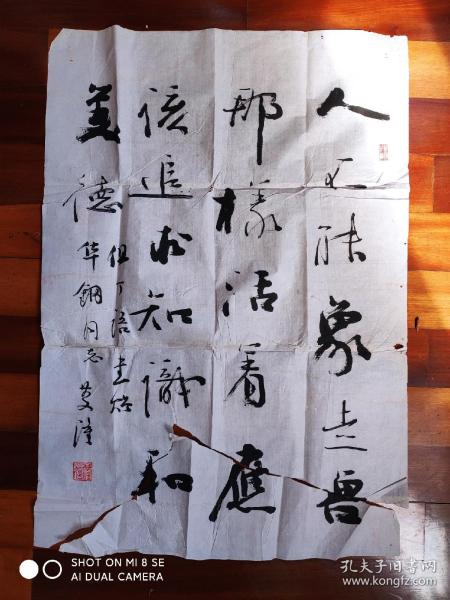 人不能象走兽
那樣活着應
該追求知識和
美德
但丁语
华钢同志
SHOT ON MI 8 SE
AI DUAL CAMERA
孔夫子旧书网
www.kongfz.com